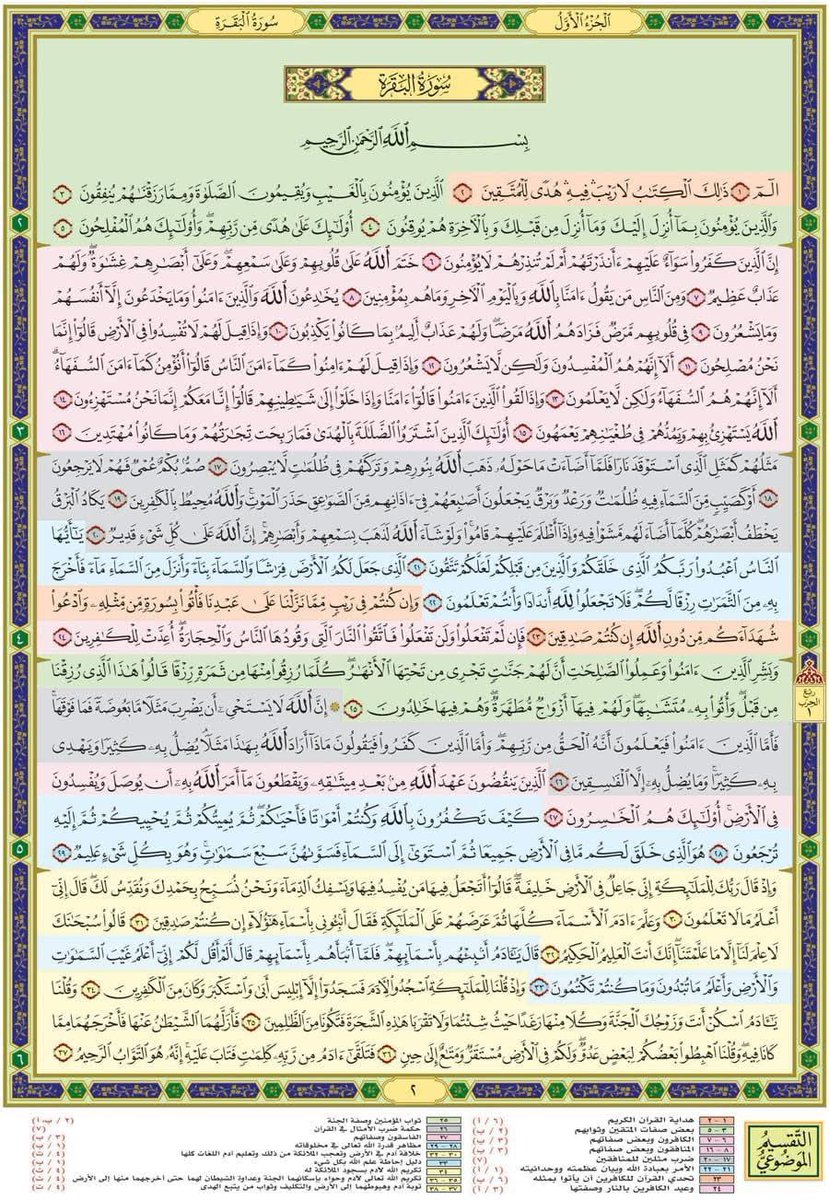 الجزء الأول
سورة البقرة
سورة البقرة
بسم الله الرحمن الرحيم
الٓمٓ ١ ذَٰلِكَ ٱلْكِتَٰبُ لَا رَيْبَ ۛ فِيهِ ۛ هُدًى لِّلْمُتَّقِينَ ٢ ٱلَّذِينَ يُؤْمِنُونَ بِٱلْغَيْبِ وَيُقِيمُونَ ٱلصَّلَوٰةَ وَمِمَّا رَزَقْنَٰهُمْ يُنفِقُونَ ٣
وَٱلَّذِينَ يُؤْمِنُونَ بِمَآ أُنزِلَ إِلَيْكَ وَمَآ أُنزِلَ مِن قَبْلِكَ وَبِٱلْءَاخِرَةِ هُمْ يُوقِنُونَ ٤ أُو۟لَٰٓئِكَ عَلَىٰ هُدًى مِّن رَّبِّهِمْ ۖ وَأُو۟لَٰٓئِكَ هُمُ ٱلْمُفْلِحُونَ ٥
إِنَّ ٱلَّذِينَ كَفَرُوا۟ سَوَآءٌ عَلَيْهِمْ ءَأَنذَرْتَهُمْ أَمْ لَمْ تُنذِرْهُمْ لَا يُؤْمِنُونَ ٦ خَتَمَ ٱللَّهُ عَلَىٰ قُلُوبِهِمْ وَعَلَىٰ سَمْعِهِمْ ۖ وَعَلَىٰٓ أَبْصَٰرِهِمْ غِشَٰوَةٌ ۖ وَلَهُمْ
عَذَابٌ عَظِيمٌ ٧ وَمِنَ ٱلنَّاسِ مَن يَقُولُ ءَامَنَّا بِٱللَّهِ وَبِٱلْيَوْمِ ٱلْءَاخِرِ وَمَا هُم بِمُؤْمِنِينَ ٨ يُخَٰدِعُونَ ٱللَّهَ وَٱلَّذِينَ ءَامَنُوا۟ وَمَا يَخْدَعُونَ إِلَّآ أَنفُسَهُمْ
وَمَا يَشْعُرُونَ ٩ فِى قُلُوبِهِم مَّرَضٌ فَزَادَهُمُ ٱللَّهُ مَرَضًا ۖ وَلَهُمْ عَذَابٌ أَلِيمٌۢ بِمَا كَانُوا۟ يَكْذِبُونَ ١٠ وَإِذَا قِيلَ لَهُمْ لَا تُفْسِدُوا۟ فِى ٱلْأَرْضِ قَالُوٓا۟ إِنَّمَا
نَحْنُ مُصْلِحُونَ ١١ أَلَآ إِنَّهُمْ هُمُ ٱلْمُفْسِدُونَ وَلَٰكِن لَّا يَشْعُرُونَ ١٢ وَإِذَا قِيلَ لَهُمْ ءَامِنُوا۟ كَمَآ ءَامَنَ ٱلنَّاسُ قَالُوٓا۟ أَنُؤْمِنُ كَمَآ ءَامَنَ ٱلسُّفَهَآءُ ۗ
أَلَآ إِنَّهُمْ هُمُ ٱلسُّفَهَآءُ وَلَٰكِن لَّا يَعْلَمُونَ ١٣ وَإِذَا لَقُوا۟ ٱلَّذِينَ ءَامَنُوا۟ قَالُوٓا۟ ءَامَنَّا وَإِذَا خَلَوْا۟ إِلَىٰ شَيَٰطِينِهِمْ قَالُوٓا۟ إِنَّا مَعَكُمْ إِنَّمَا نَحْنُ مُسْتَهْزِءُونَ ١٤
ٱللَّهُ يَسْتَهْزِئُ بِهِمْ وَيَمُدُّهُمْ فِى طُغْيَٰنِهِمْ يَعْمَهُونَ ١٥ أُو۟لَٰٓئِكَ ٱلَّذِينَ ٱشْتَرَوُا۟ ٱلضَّلَٰلَةَ بِٱلْهُدَىٰ فَمَا رَبِحَت تِّجَٰرَتُهُمْ وَمَا كَانُوا۟ مُهْتَدِينَ ١٦
مَثَلُهُمْ كَمَثَلِ ٱلَّذِى ٱسْتَوْقَدَ نَارًا فَلَمَّآ أَضَآءَتْ مَا حَوْلَهُۥ ذَهَبَ ٱللَّهُ بِنُورِهِمْ وَتَرَكَهُمْ فِى ظُلُمَٰتٍ لَّا يُبْصِرُونَ ١٧ صُمٌّۢ بُكْمٌ عُمْىٌ فَهُمْ لَا يَرْجِعُونَ
١٨ أَوْ كَصَيِّبٍ مِّنَ ٱلسَّمَآءِ فِيهِ ظُلُمَٰتٌ وَرَعْدٌ وَبَرْقٌ يَجْعَلُونَ أَصَٰبِعَهُمْ فِىٓ ءَاذَانِهِم مِّنَ ٱلصَّوَٰعِقِ حَذَرَ ٱلْمَوْتِ ۚ وَٱللَّهُ مُحِيطٌۢ بِٱلْكَٰفِرِينَ ١٩ يَكَادُ ٱلْبَرْقُ
يَخْطَفُ أَبْصَٰرَهُمْ ۖ كُلَّمَآ أَضَآءَ لَهُم مَّشَوْا۟ فِيهِ وَإِذَآ أَظْلَمَ عَلَيْهِمْ قَامُوا۟ ۚ وَلَوْ شَآءَ ٱللَّهُ لَذَهَبَ بِسَمْعِهِمْ وَأَبْصَٰرِهِمْ ۚ إِنَّ ٱللَّهَ عَلَىٰ كُلِّ شَىْءٍ قَدِيرٌ ٢٠ يَٰٓأَيُّهَا
ٱلنَّاسُ ٱعْبُدُوا۟ رَبَّكُمُ ٱلَّذِى خَلَقَكُمْ وَٱلَّذِينَ مِن قَبْلِكُمْ لَعَلَّكُمْ تَتَّقُونَ ٢١ ٱلَّذِى جَعَلَ لَكُمُ ٱلْأَرْضَ فِرَٰشًا وَٱلسَّمَآءَ بِنَآءً وَأَنزَلَ مِنَ ٱلسَّمَآءِ مَآءً فَأَخْرَجَ
بِهِۦ مِنَ ٱلثَّمَرَٰتِ رِزْقًا لَّكُمْ ۖ فَلَا تَجْعَلُوا۟ لِلَّهِ أَندَادًا وَأَنتُمْ تَعْلَمُونَ ٢٢ وَإِن كُنتُمْ فِى رَيْبٍ مِّمَّا نَزَّلْنَا عَلَىٰ عَبْدِنَا فَأْتُوا۟ بِسُورَةٍ مِّن مِّثْلِهِۦ وَٱدْعُوا۟
شُهَدَآءَكُم مِّن دُونِ ٱللَّهِ إِن كُنتُمْ صَٰدِقِينَ ٢٣ فَإِن لَّمْ تَفْعَلُوا۟ وَلَن تَفْعَلُوا۟ فَٱتَّقُوا۟ ٱلنَّارَ ٱلَّتِى وَقُودُهَا ٱلنَّاسُ وَٱلْحِجَارَةُ ۖ أُعِدَّتْ لِلْكَٰفِرِينَ ٢٤
وَبَشِّرِ ٱلَّذِينَ ءَامَنُوا۟ وَعَمِلُوا۟ ٱلصَّٰلِحَٰتِ أَنَّ لَهُمْ جَنَّٰتٍ تَجْرِى مِن تَحْتِهَا ٱلْأَنْهَٰرُ ۖ كُلَّمَا رُزِقُوا۟ مِنْهَا مِن ثَمَرَةٍ رِّزْقًا قَالُوا۟ هَٰذَا ٱلَّذِى رُزِقْنَا
مِن قَبْلُ ۖ وَأُتُوا۟ بِهِۦ مُتَشَٰبِهًا ۖ وَلَهُمْ فِيهَآ أَزْوَٰجٌ مُّطَهَّرَةٌ ۖ وَهُمْ فِيهَا خَٰلِدُونَ ٢٥ ۞ إِنَّ ٱللَّهَ لَا يَسْتَحْىِۦٓ أَن يَضْرِبَ مَثَلًا مَّا بَعُوضَةً فَمَا فَوْقَهَا ۚ
فَأَمَّا ٱلَّذِينَ ءَامَنُوا۟ فَيَعْلَمُونَ أَنَّهُ ٱلْحَقُّ مِن رَّبِّهِمْ ۖ وَأَمَّا ٱلَّذِينَ كَفَرُوا۟ فَيَقُولُونَ مَاذَآ أَرَادَ ٱللَّهُ بِهَٰذَا مَثَلًا ۘ يُضِلُّ بِهِۦ كَثِيرًا وَيَهْدِى
بِهِۦ كَثِيرًا ۚ وَمَا يُضِلُّ بِهِۦٓ إِلَّا ٱلْفَٰسِقِينَ ٢٦ ٱلَّذِينَ يَنقُضُونَ عَهْدَ ٱللَّهِ مِنۢ بَعْدِ مِيثَٰقِهِۦ وَيَقْطَعُونَ مَآ أَمَرَ ٱللَّهُ بِهِۦٓ أَن يُوصَلَ وَيُفْسِدُونَ
فِى ٱلْأَرْضِ ۚ أُو۟لَٰٓئِكَ هُمُ ٱلْخَٰسِرُونَ ٢٧ كَيْفَ تَكْفُرُونَ بِٱللَّهِ وَكُنتُمْ أَمْوَٰتًا فَأَحْيَٰكُمْ ۖ ثُمَّ يُمِيتُكُمْ ثُمَّ يُحْيِيكُمْ ثُمَّ إِلَيْهِ
تُرْجَعُونَ ٢٨ هُوَ ٱلَّذِى خَلَقَ لَكُم مَّا فِى ٱلْأَرْضِ جَمِيعًا ثُمَّ ٱسْتَوَىٰٓ إِلَى ٱلسَّمَآءِ فَسَوَّىٰهُنَّ سَبْعَ سَمَٰوَٰتٍ ۚ وَهُوَ بِكُلِّ شَىْءٍ عَلِيمٌ ٢٩
وَإِذْ قَالَ رَبُّكَ لِلْمَلَٰٓئِكَةِ إِنِّى جَاعِلٌ فِى ٱلْأَرْضِ خَلِيفَةً ۖ قَالُوٓا۟ أَتَجْعَلُ فِيهَا مَن يُفْسِدُ فِيهَا وَيَسْفِكُ ٱلدِّمَآءَ وَنَحْنُ نُسَبِّحُ بِحَمْدِكَ وَنُقَدِّسُ لَكَ ۖ قَالَ إِنِّىٓ
أَعْلَمُ مَا لَا تَعْلَمُونَ ٣٠ وَعَلَّمَ ءَادَمَ ٱلْأَسْمَآءَ كُلَّهَا ثُمَّ عَرَضَهُمْ عَلَى ٱلْمَلَٰٓئِكَةِ فَقَالَ أَنۢبِـُٔونِى بِأَسْمَآءِ هَٰٓؤُلَآءِ إِن كُنتُمْ صَٰدِقِينَ ٣١ قَالُوا۟ سُبْحَٰنَكَ
لَا عِلْمَ لَنَآ إِلَّا مَا عَلَّمْتَنَآ ۖ إِنَّكَ أَنتَ ٱلْعَلِيمُ ٱلْحَكِيمُ ٣٢ قَالَ يَٰٓـَٔادَمُ أَنۢبِئْهُم بِأَسْمَآئِهِمْ ۖ فَلَمَّآ أَنۢبَأَهُم بِأَسْمَآئِهِمْ قَالَ أَلَمْ أَقُل لَّكُمْ إِنِّىٓ أَعْلَمُ غَيْبَ ٱلسَّمَٰوَٰتِ
وَٱلْأَرْضِ وَأَعْلَمُ مَا تُبْدُونَ وَمَا كُنتُمْ تَكْتُمُونَ ٣٣ وَإِذْ قُلْنَا لِلْمَلَٰٓئِكَةِ ٱسْجُدُوا۟ لِءَادَمَ فَسَجَدُوٓا۟ إِلَّآ إِبْلِيسَ أَبَىٰ وَٱسْتَكْبَرَ وَكَانَ مِنَ ٱلْكَٰفِرِينَ ٣٤ وَقُلْنَا
يَٰٓـَٔادَمُ ٱسْكُنْ أَنتَ وَزَوْجُكَ ٱلْجَنَّةَ وَكُلَا مِنْهَا رَغَدًا حَيْثُ شِئْتُمَا وَلَا تَقْرَبَا هَٰذِهِ ٱلشَّجَرَةَ فَتَكُونَا مِنَ ٱلظَّٰلِمِينَ ٣٥ فَأَزَلَّهُمَا ٱلشَّيْطَٰنُ عَنْهَا فَأَخْرَجَهُمَا مِمَّا
كَانَا فِيهِ ۖ وَقُلْنَا ٱهْبِطُوا۟ بَعْضُكُمْ لِبَعْضٍ عَدُوٌّ ۖ وَلَكُمْ فِى ٱلْأَرْضِ مُسْتَقَرٌّ وَمَتَٰعٌ إِلَىٰ حِينٍ ٣٦ فَتَلَقَّىٰٓ ءَادَمُ مِن رَّبِّهِۦ كَلِمَٰتٍ فَتَابَ عَلَيْهِ ۚ إِنَّهُۥ هُوَ ٱلتَّوَّابُ ٱلرَّحِيمُ ٣٧
٢
٣
٤
ربع
الحزب
١
٥
٦
٢
التقسيم
الموضوعي
١ - ٢ هداية القرآن الكريم
٣ - ٥ بعض صفات المتقين وثوابهم
٦ - ٧ الكافرون وبعض صفاتهم
٨ - ١٦ المنافقون وبعض صفاتهم
١٧ - ٢٠ ضرب مثلين للمنافقين
٢١ - ٢٢ الأمر بعبادة الله وبيان عظمته ووحدانيته
٢٣ تحدي القرآن للكافرين أن يأتوا بمثله
٢٤ وعيد الكافرين بالنار وصفتها
٢٥ ثواب المؤمنين وصفة الجنة
٢٦ حكمة ضرب الأمثال في القرآن
٢٧ الفاسقون وصفاتهم
٢٨ - ٢٩ مظاهر قدرة الله تعالى في مخلوقاته
٣٠ - ٣٢ خلافة آدم في الأرض وتعجب الملائكة من ذلك وتعليم آدم اللغات كلها
٣٣ دليل إحاطة علم الله بكل شيء
٣٤ تكريم الله لآدم بسجود الملائكة له
تكريم الله تعالى لآدم وحواء بإسكانهما الجنة وعداوة الشيطان لهما حتى أخرجهما منها إلى الأرض
توبة آدم وهبوطهما إلى الأرض والتكليف وثواب من يتبع الهدى